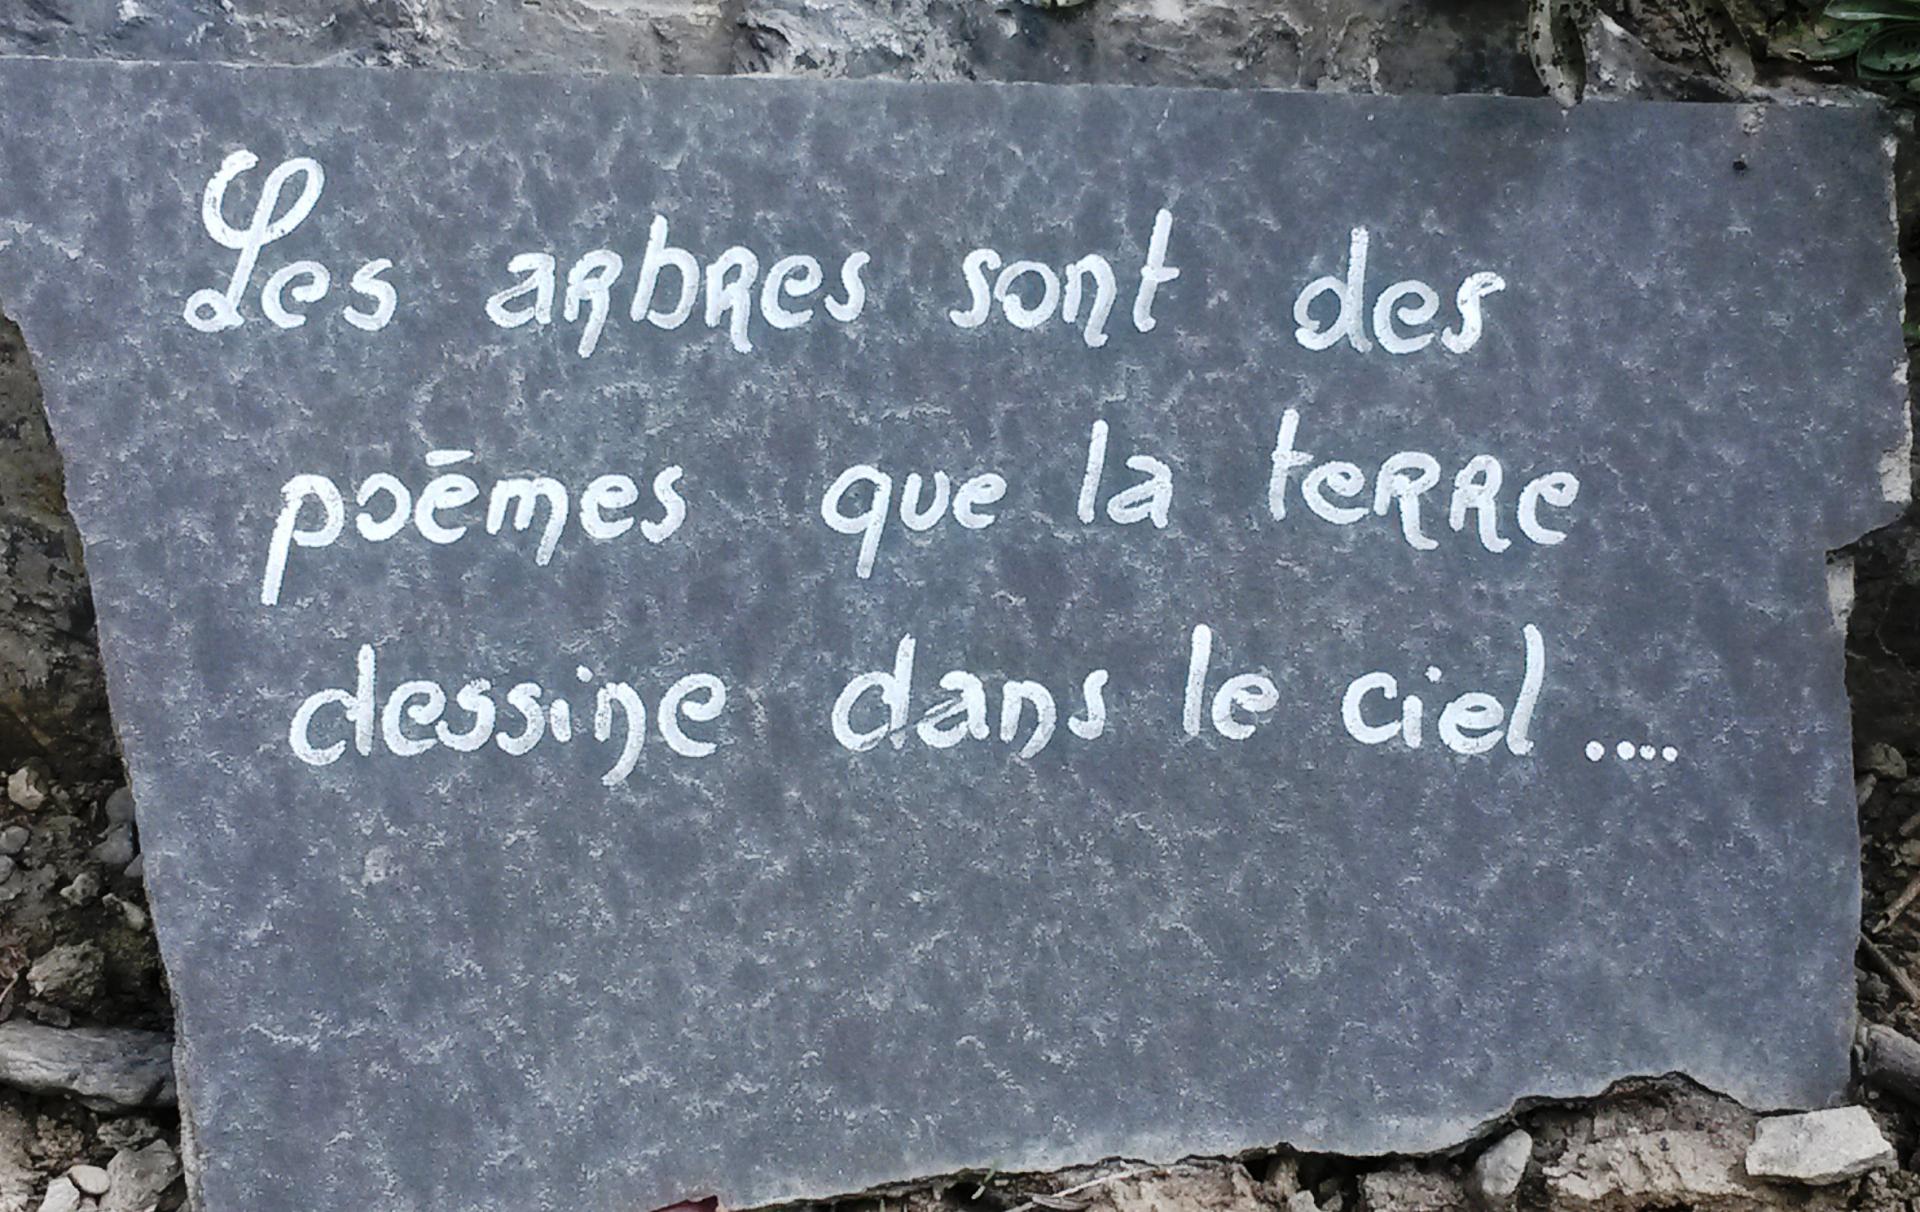 Les arbres sont des
poēmes que la terre
dessine dans le ciel ....